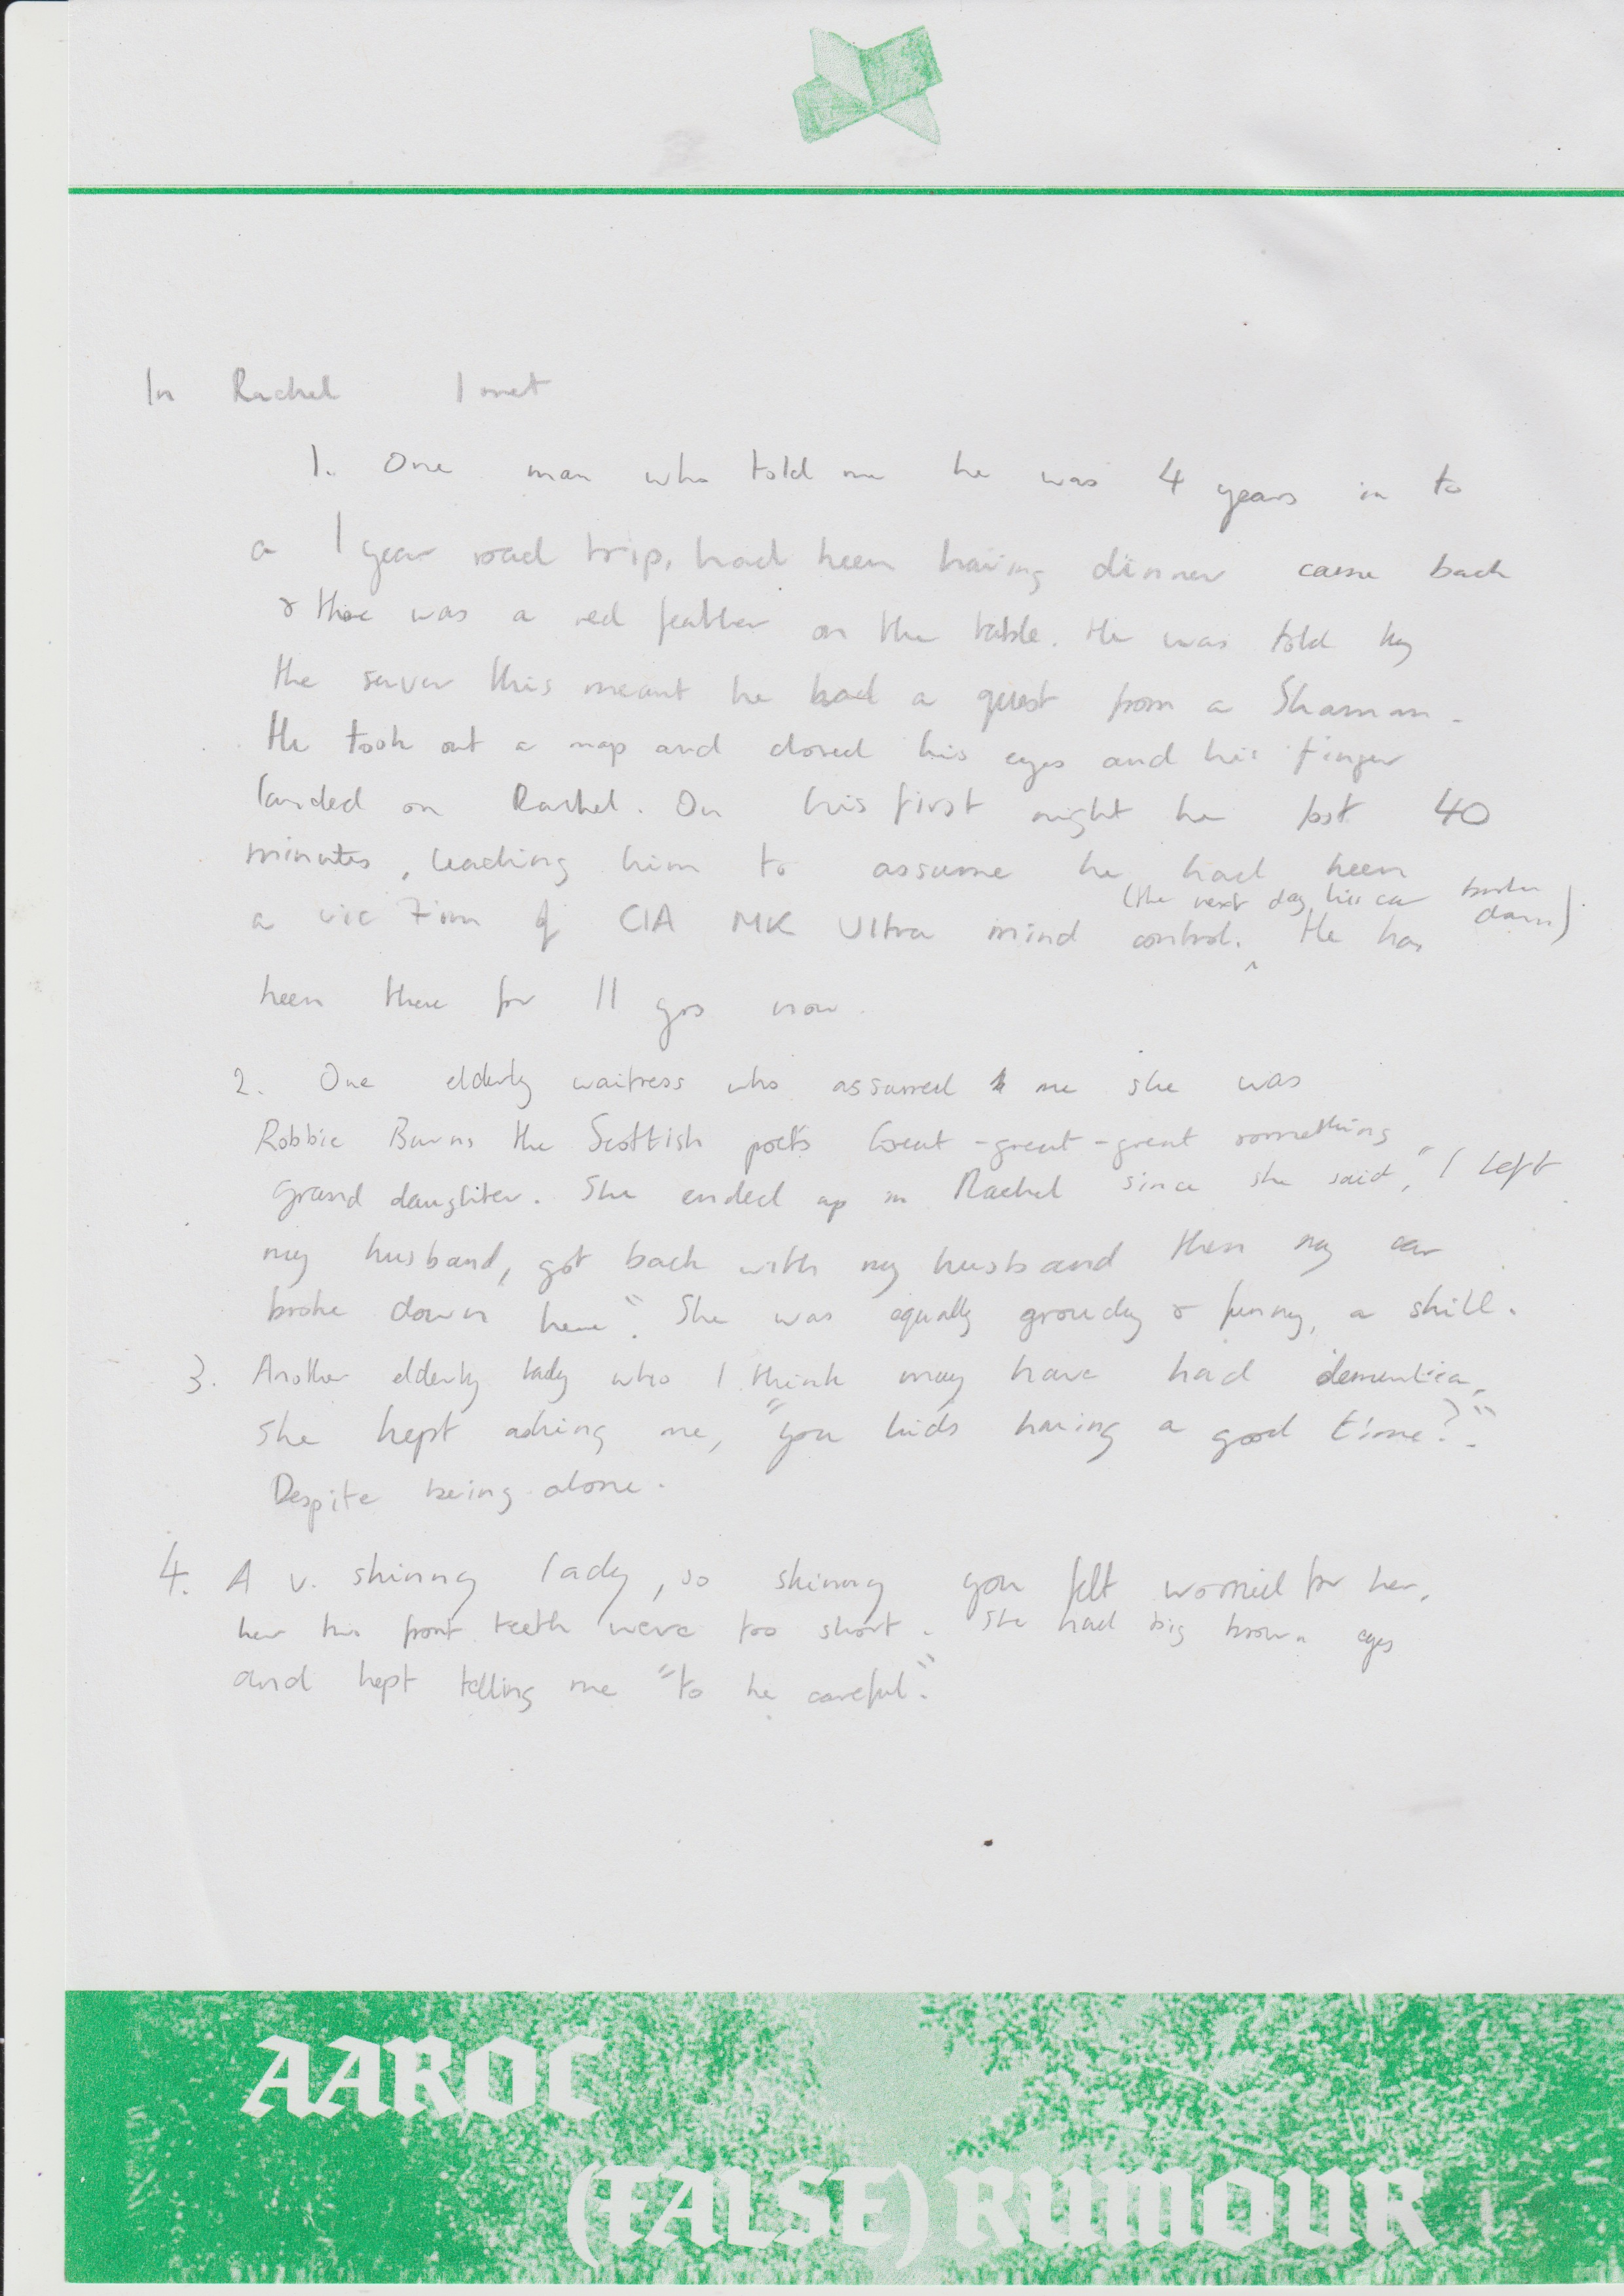 In Rachel I met
1. One man who told me he was 4 years in to
a 1 year road trip, had been having dinner came back
& there was a red feather on the table. He was told by
the server this meant he had a quest from a Shaman.
He took out a map and closed his eyes and his finger
landed on Rachel. On his first night he lost 40
minutes, leading him to assume he had been
(the next day his car broke down)
a victim of CIA MK Ultra mind control. He has
been there for 11 yrs now.
2. One elderly waitress who assured me she was
Robbie Burns the Scottish poet's Great-great-great something
grand daughter. She ended up in Rachel since she said, "I left
my husband, got back with my husband then my car
broke down here". She was equally grouchy & funny, a skill.
3. Another elderly lady who I think may have had dementia,
she kept asking me, "you kids having a good time?".
Despite being alone.
4. A v. skinny lady, so skinny you felt worried for her,
her two front teeth were too short. She had big brown eyes
and kept telling me "to be careful".
AAROC
(FALSE) RUMOUR